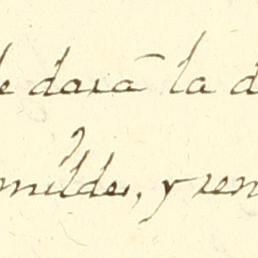 le dará la d
milder, y ren